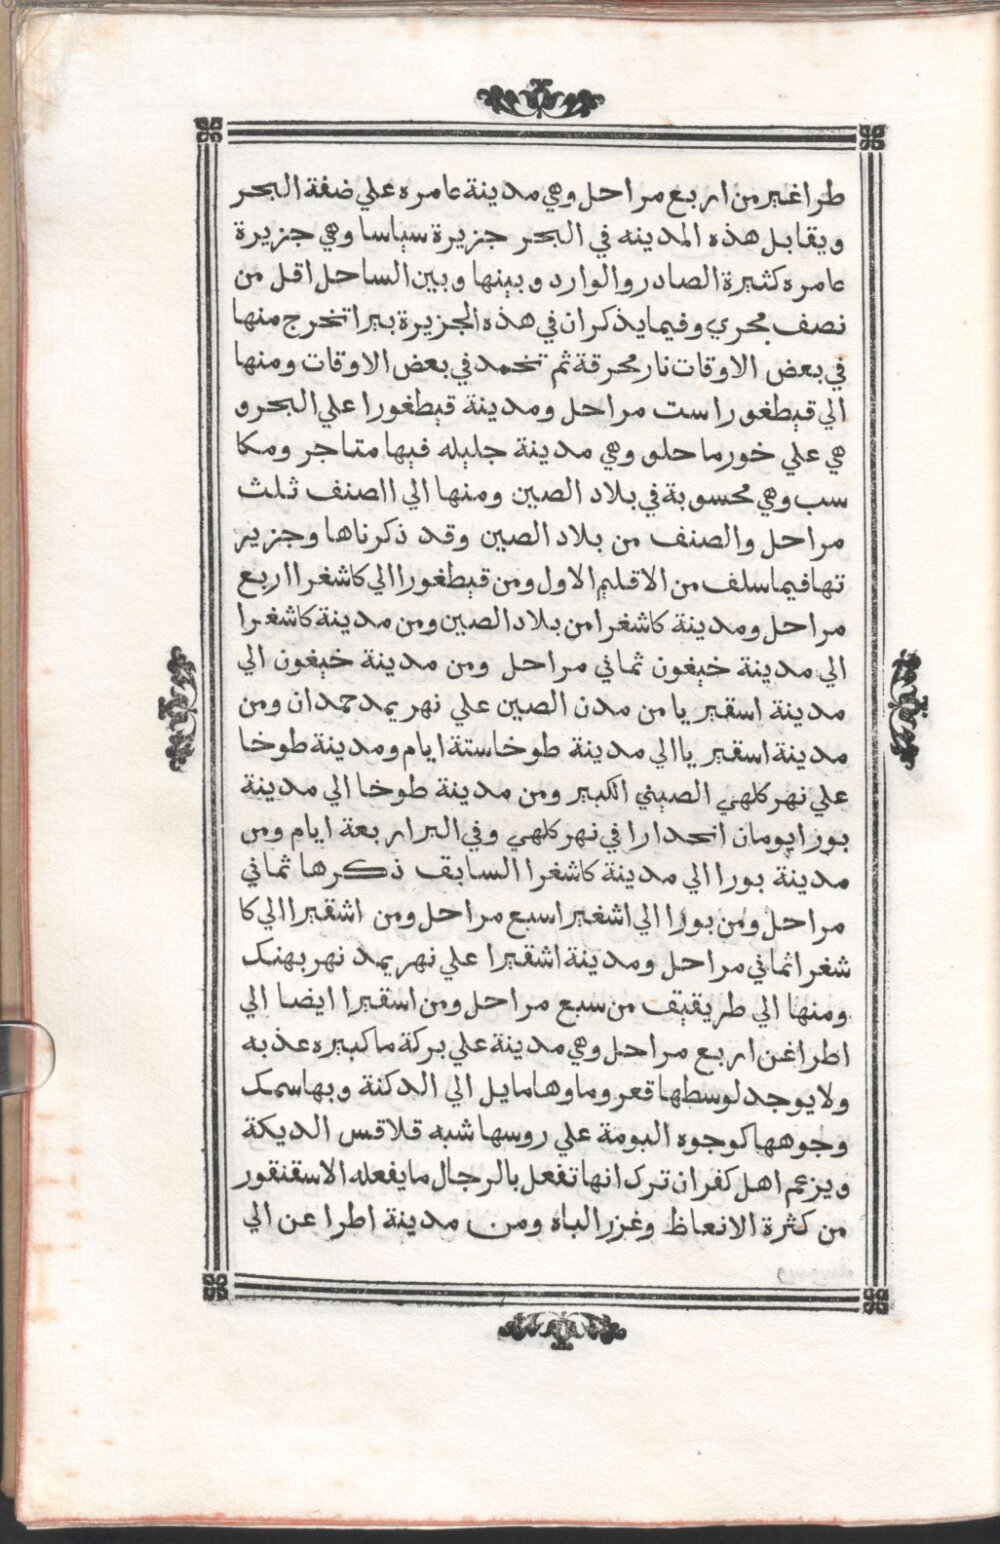 طراغير من اربع مراحل وهي مدينة عامره علي ضفة البحر
ويقابل هذه المدينه في البحر جزيرة سناسا وهي جزيرة
عامره كثيرة الصادر والوارد وبينها وبين الساحل اقل من
نصف مجري وفيما يذكر ان في هذه الجزيرة بيرا تخرج منها
في بعض الاوقات نار محرقة ثم تخمد في بعض الاوقات ومنها
الي قيطغورا ست مراحل ومدينة قيطغورا علي البحر و
هي علي خور ما حلو وهي مدينة جليله فيها متاجر ومكا
سب وهي محسوبة في بلاد الصين ومنها الي االصنف ثلث
مراحل والصنف من بلاد الصين وقد ذكرناها وجزير
تها فيما سلف من الاقليم الاول ومن قيطغورا الي كاشغرا اربع
مراحل ومدينة كاشغرا من بلاد الصين ومن مدينة كاشغرا
الي مدينة خيغون ثماني مراحل ومن مدينة خيغون الي
مدينة اسقيريا من مدن الصين علي نهر يمد حمدان ومن
مدينة اسقيريا الي مدينة طوخا ستة ايام ومدينة طوخا
علي نهر كلهي الصيني الكبير ومن مدينة طوخا الي مدينة
بورا يومان انحدارا في نهر كلهي وفي البر اربعة ايام ومن
مدينة بورا الي مدينة كاشغرا السابق ذكرها ثماني
مراحل ومن بورا الي اشغيرا سبع مراحل ومن اشقيرا الي كا
شغرا ثماني مراحل ومدينة اشقيرا علي نهر يمد نهر بهنك
ومنها الي طريقيق من سبع مراحل ومن اسقيرا ايضا الي
اطراغن اربع مراحل وهي مدينة علي بركة ما كبيره عذبه
ولا يوجد لوسطها قعر وماوها مايل الي الدكنة وبها سمك
وجوهها كوجوه البومة علي روسها شبه قلاقس الديكة
ويزعم اهل كفر ان ترك انها تفعل بالرجال ما يفعله الاسقنقور
من كثرة الانعاظ وغزر الباه ومن مدينة اطراعن الي